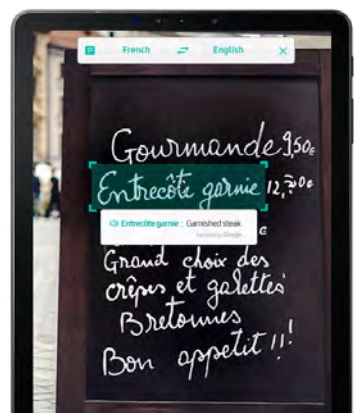 French English
Gourmande 9,50€
Entrecôte garnie
Entrecôte garnie : Garnished steak
Google
€
Grand choix des
crêpes et galettes
Bretonnes
Bon appetit !!!